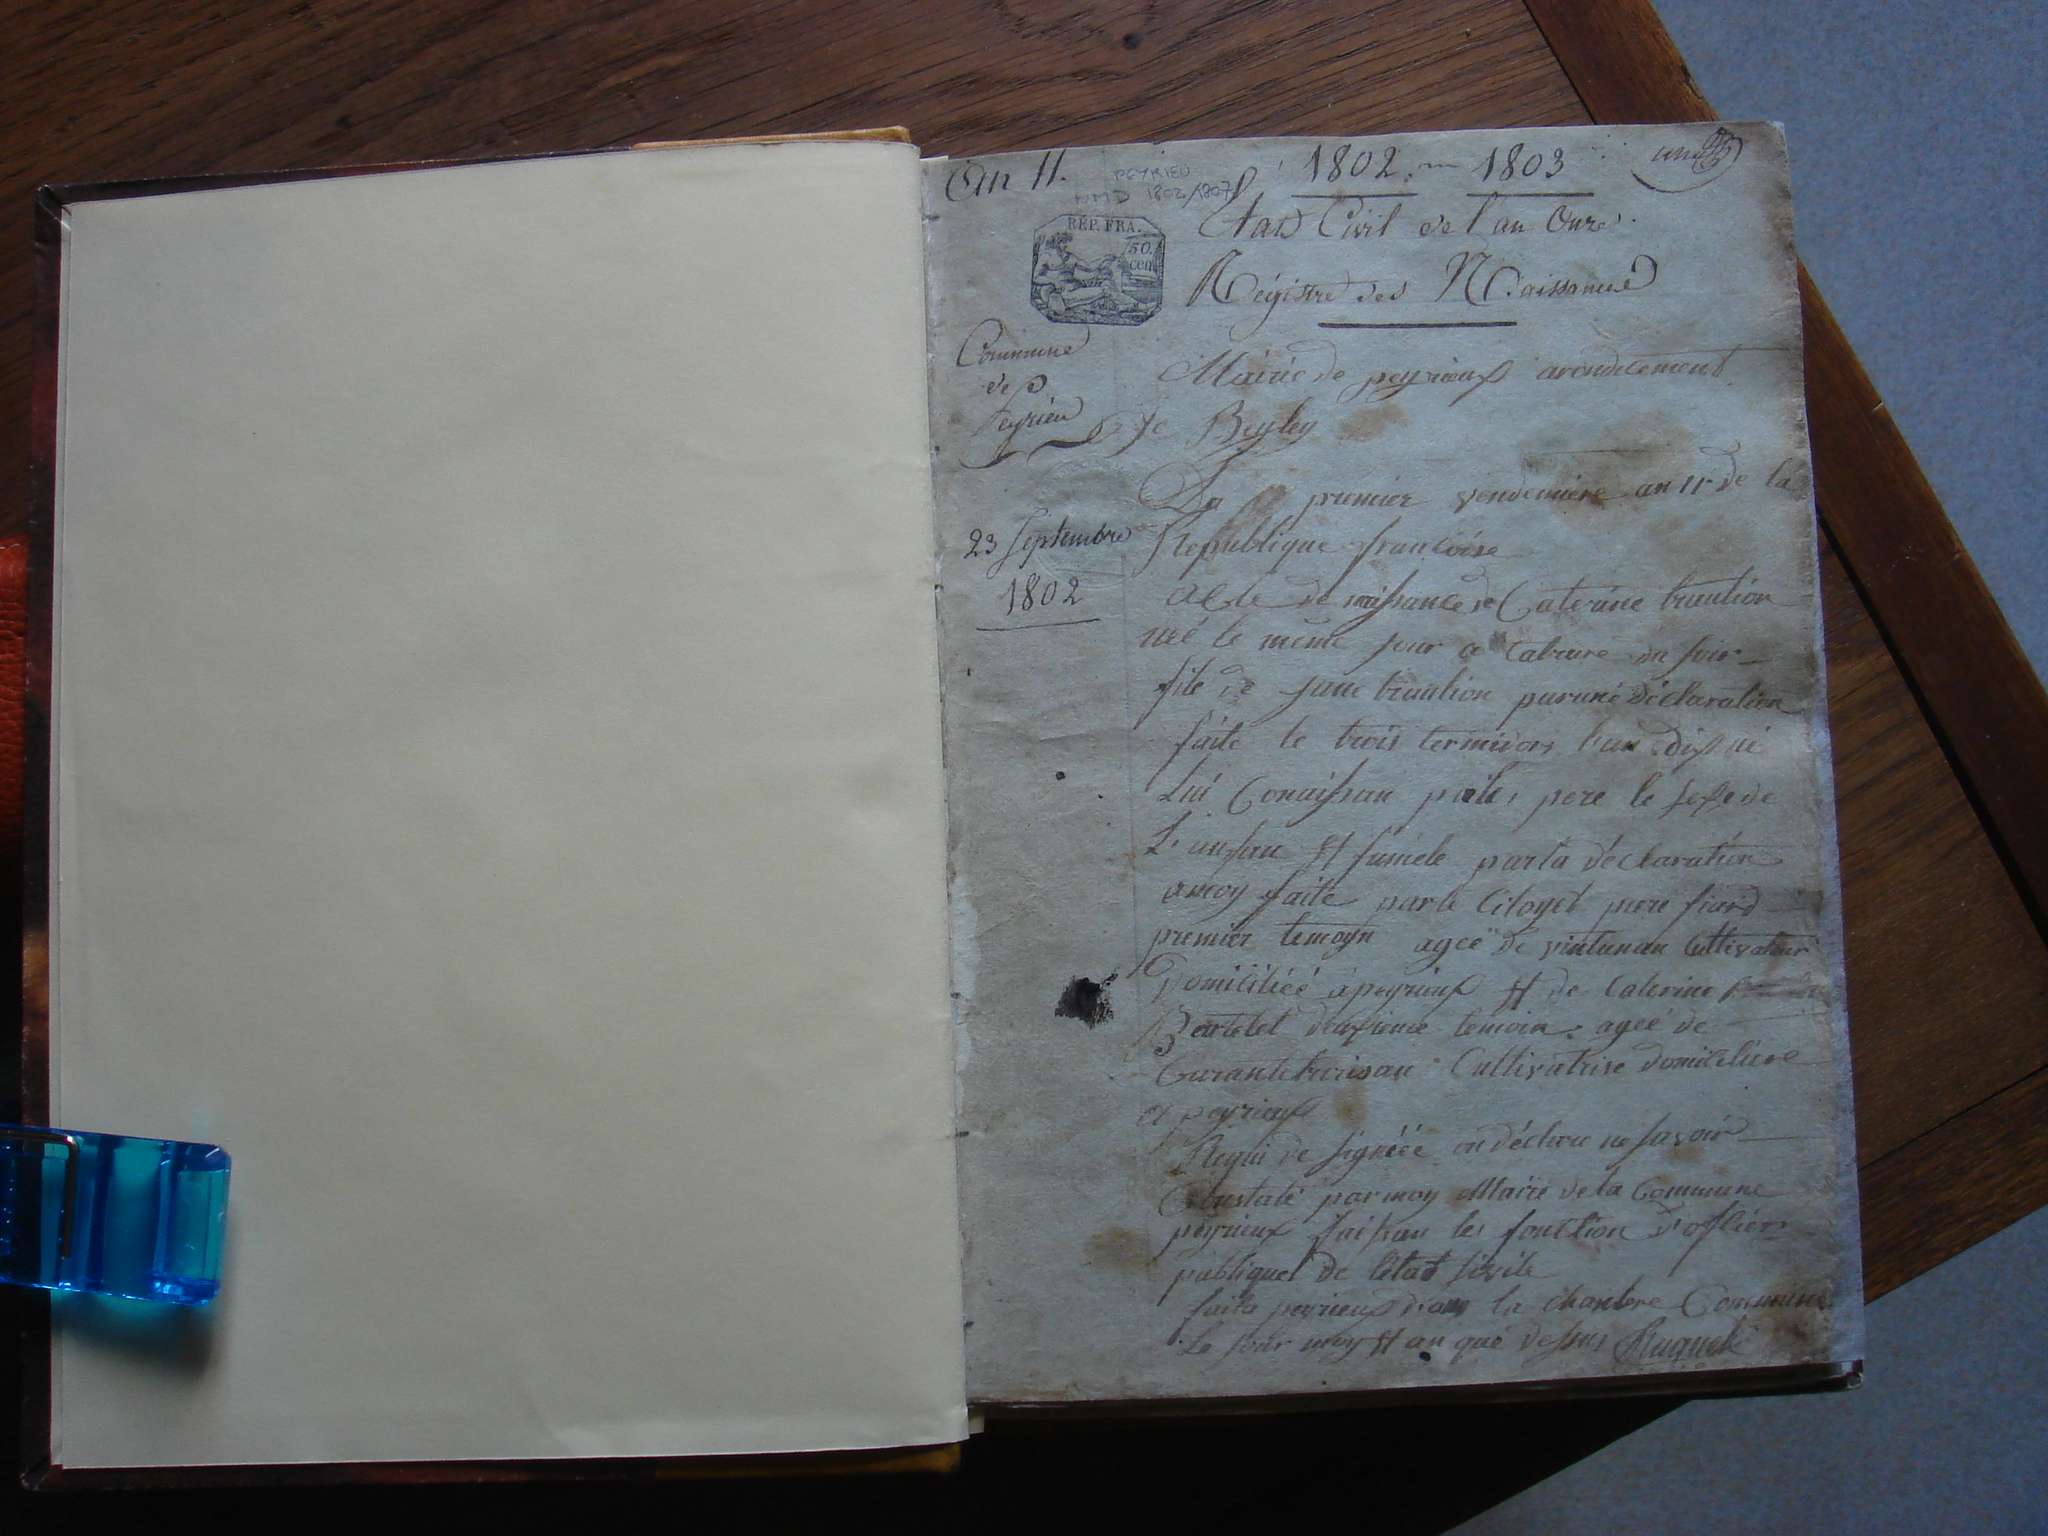 An 11.
1802. 1803
PEYRIEU
NMD 1802/1807
REP. FRA.
50.
cen
Etat Civil de l'an Onze.
Régistre des Naissances
Commune
de
Peyrieu
Mairie de peyrieux arondicement
de Belley
23 Septembre
1802
Du premier vendemiere an 11 de la
Republique francoise
Acte de naissance de Caterine
née le même jour a du soir
file de par une déclaration
faite le trois
Lui Conaissan pere le sexe de
L'anfan et fumele par la déclaration
a moy faite par le Citoyet piere
premier temoyn agee de vintunan Cultivateur
Domiciliéé a peyrieux et de Caterine
Bertelet deuxieme temoin agée de
Carantetroisan Cultivatrise domiciliere
a peyrieux
Requi de signéé on déclare ne savoir
Constaté par moy Maire de la Commune
peyrieux faisan les fonction d'officier
publique de l'état sivile
fait a peyrieux dans la chanbre Commune
Le jour moy et an que dessus